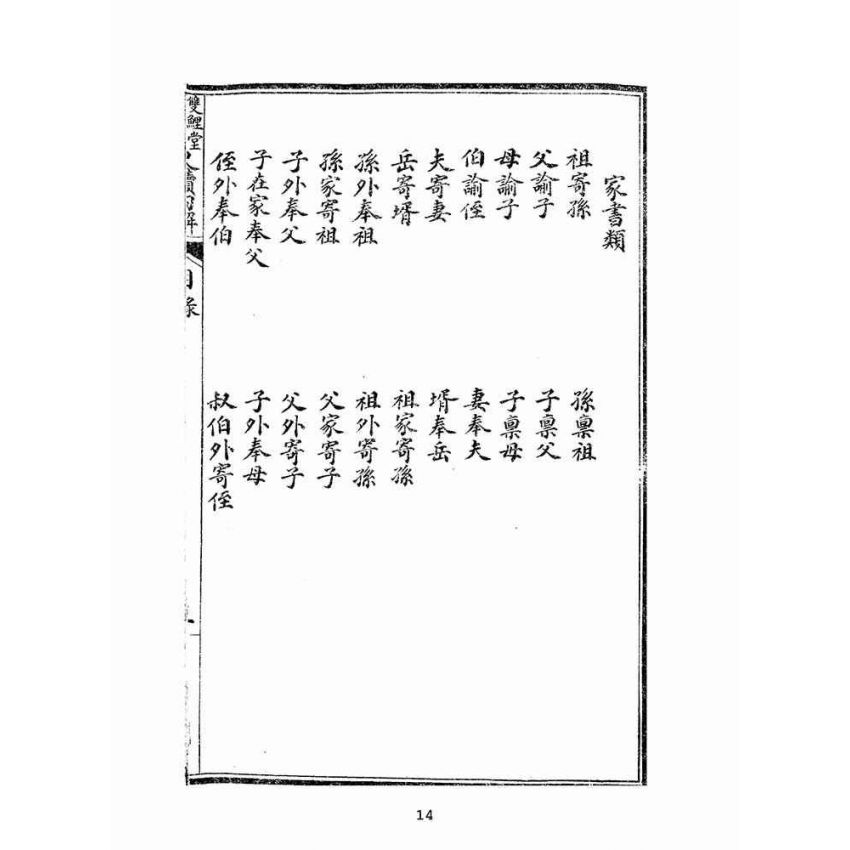 家書類
祖寄孫
孫禀祖
父諭子
子禀父
母諭子
子禀母
伯諭侄
妻奉夫
夫寄妻
壻奉岳
岳寄壻
祖家寄孫
孫外奉祖
祖外寄孫
孫家寄祖
父家寄子
子外奉父
父外寄子
子在家奉父
子外奉母
侄外奉伯
叔伯外寄侄
雙鯉堂
目錄
14